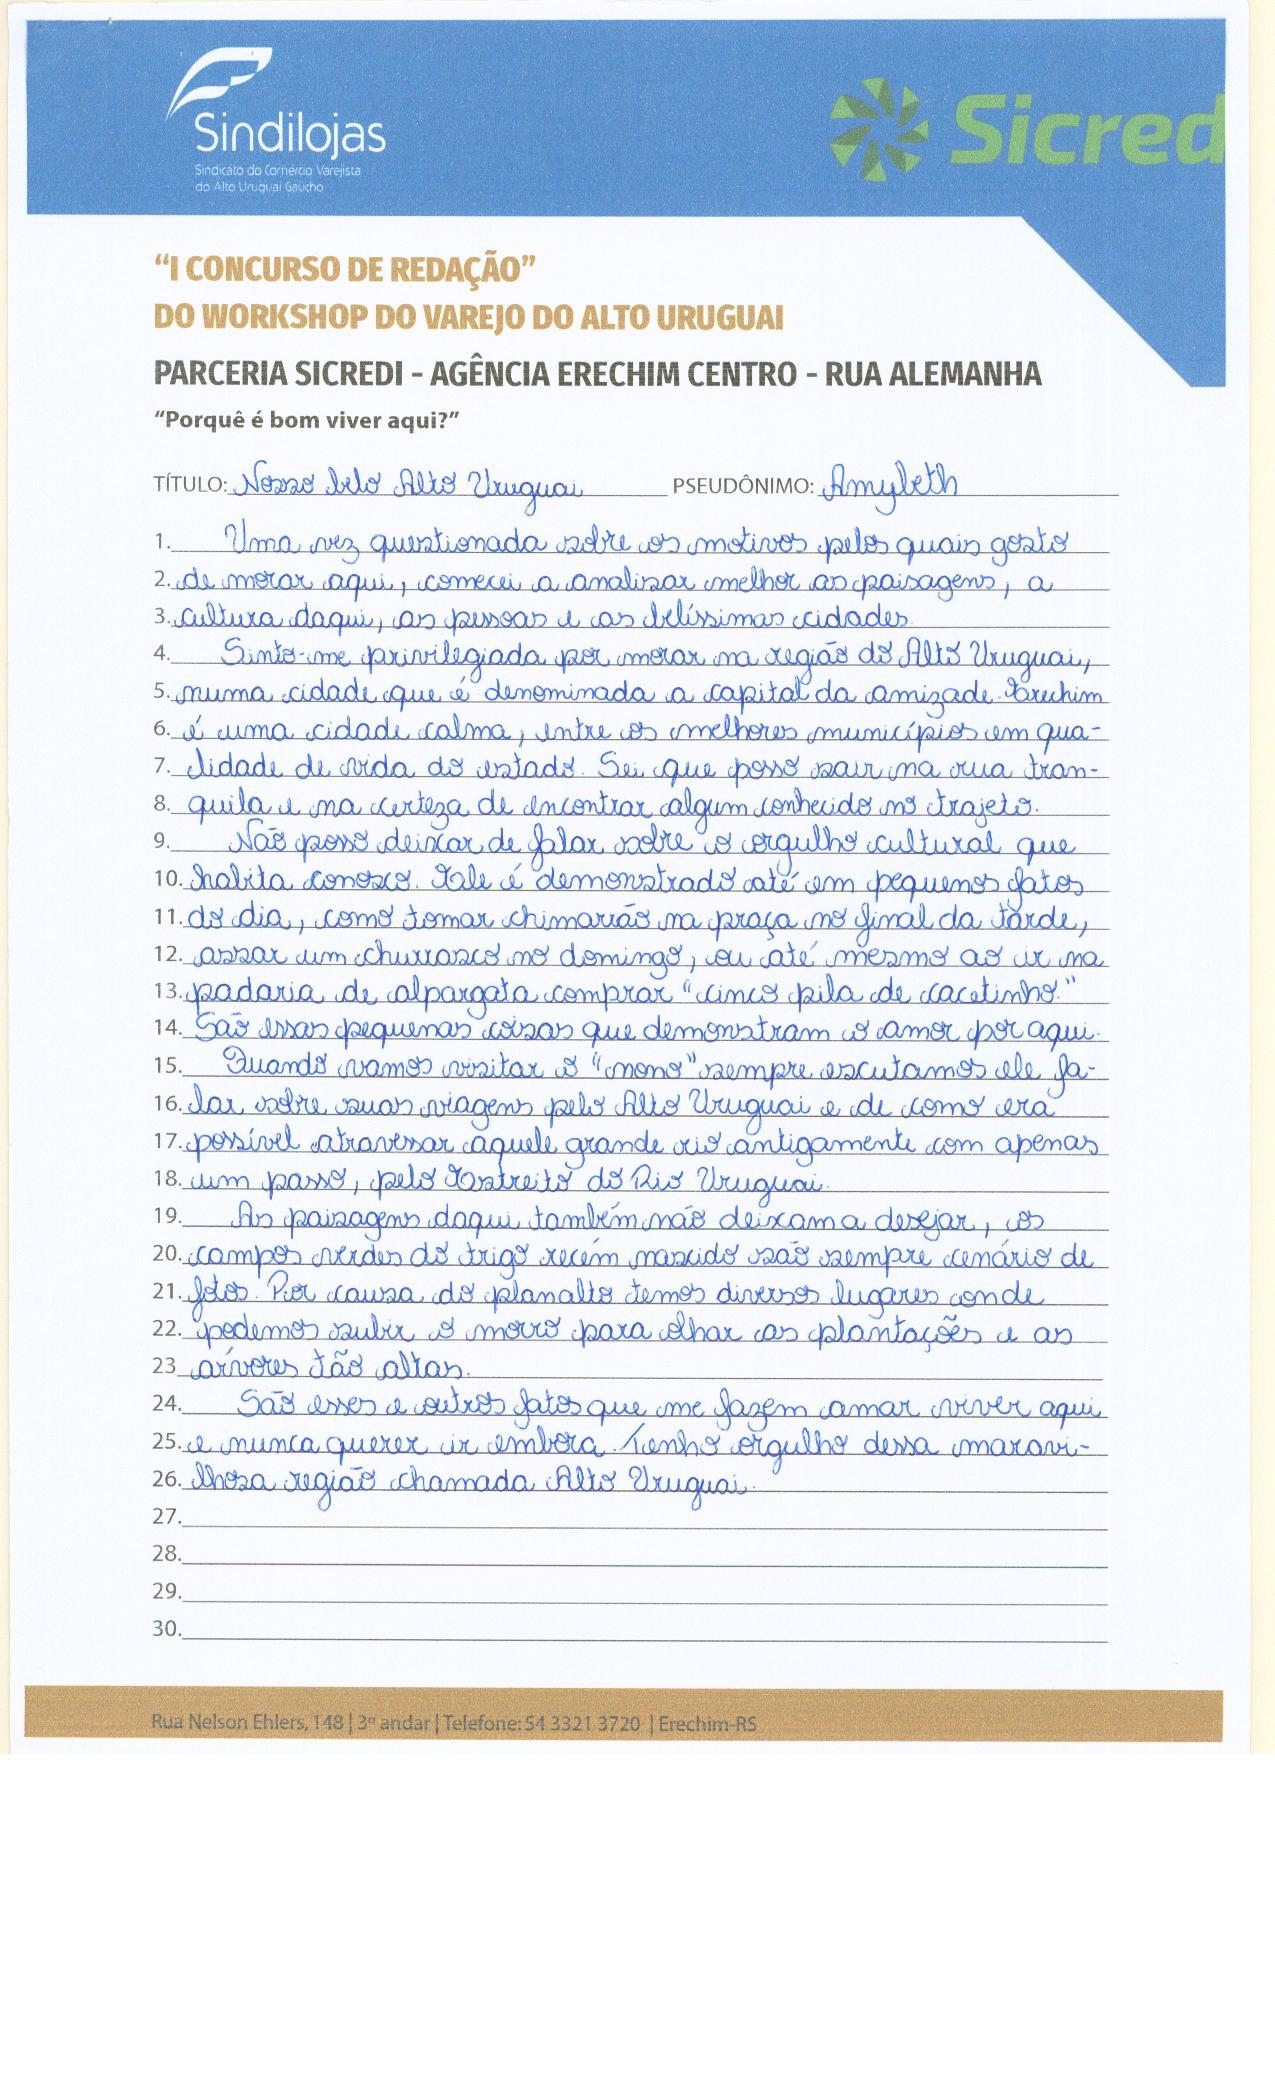 Sindilojas
Sindicato do Comércio Varejista
do Alto Uruguai Gaucho
Sicred
“I CONCURSO DE REDAÇÃO”
DO WORKSHOP DO VAREJO DO ALTO URUGUAI
PARCERIA SICREDI - AGÊNCIA ERECHIM CENTRO - RUA ALEMANHA
“Porquê é bom viver aqui?”
TÍTULO: Nosso belo Alto Uruguai PSEUDÔNIMO: Amybeth
1. Uma vez questionada sobre os motivos pelos quais gosto
2. de morar aqui, comecei a analisar melhor as paisagens, a
3. cultura daqui, as pessoas e as belíssimas cidades.
4. Sinto-me privilegiada por morar na região do Alto Uruguai,
5. numa cidade que é denominada a capital da amizade. Erechim
6. é uma cidade calma, entre os melhores municípios em qua-
7. lidade de vida do estado. Sei que posso sair na rua tran-
8. quila e na certeza de encontrar algum conhecido no trajeto.
9. Não posso deixar de falar sobre o orgulho cultural que
10. habita conosco. Ele é demonstrado até em pequenos fatos
11. do dia, como tomar chimarrão na praça no final da tarde,
12. assar um churrasco no domingo, ou até mesmo ao ir na
13. padaria de alpargata comprar “cinco pila de cacetinho.”
14. São essas pequenas coisas que demonstram o amor por aqui.
15. Quando vamos visitar o “nono” sempre escutamos ele fa-
16. lar sobre suas viagens pelo Alto Uruguai e de como era
17. possível atravessar aquele grande rio antigamente com apenas
18. um passo, pelo Estreito do Rio Uruguai.
19. As paisagens daqui também não deixam a desejar, os
20. campos verdes do trigo recém nascido são sempre cenário de
21. fotos. Por causa do planalto temos diversos lugares onde
22. podemos subir o morro para olhar as plantações e as
23 árvores tão altas.
24. São esses e outros fatos que me fazem amar viver aqui
25. e nunca querer ir embora. Tenho orgulho dessa maravi-
26. lhosa região chamada Alto Uruguai.
27.
28.
29.
30.
Rua Nelson Ehlers, 148 | 3º andar | Telefone: 54 3321 3720 | Erechim-RS